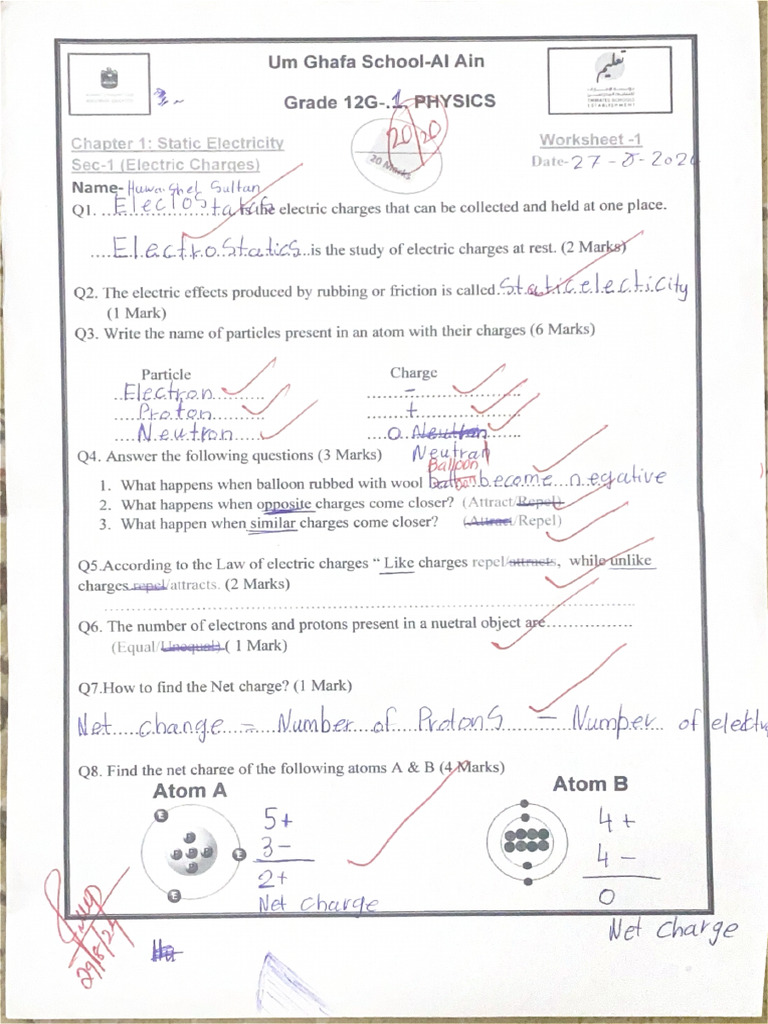 Um Ghafa School-Al Ain
تعليم
EMIRATES SCHOOLS ESTABLISHMENT
Grade 12G-.1. PHYSICS
20/20
20 Marks
Chapter 1: Static Electricity
Worksheet -1
Sec-1 (Electric Charges)
Date-27-8-2024
Name- Huwaishel Sultan
Q1. Eleclostatics is the electric charges that can be collected and held at one place.
Electrostatics is the study of electric charges at rest. (2 Marks)
Q2. The electric effects produced by rubbing or friction is called static electicity
(1 Mark)
Q3. Write the name of particles present in an atom with their charges (6 Marks)
Particle Charge
Electron -
Proton +
Neutron 0 Neutron
Neutral
Q4. Answer the following questions (3 Marks)
Balloon
1. What happens when balloon rubbed with wool become negative
2. What happens when opposite charges come closer? (Attract/Repel)
3. What happen when similar charges come closer? (Attract/Repel)
Q5.According to the Law of electric charges “ Like charges repel/attracts, while unlike
charges repel/attracts. (2 Marks)
Q6. The number of electrons and protons present in a nuetral object are................
(Equal/Unequal) ( 1 Mark)
Q7.How to find the Net charge? (1 Mark)
Net change = Number of Protons - Number of electr
Q8. Find the net charge of the following atoms A & B (4 Marks)
Atom A Atom B
E
E
E
P
P P P
P
5+
3-
2+
Net charge
4+
4-
0
Net charge
29/8/24